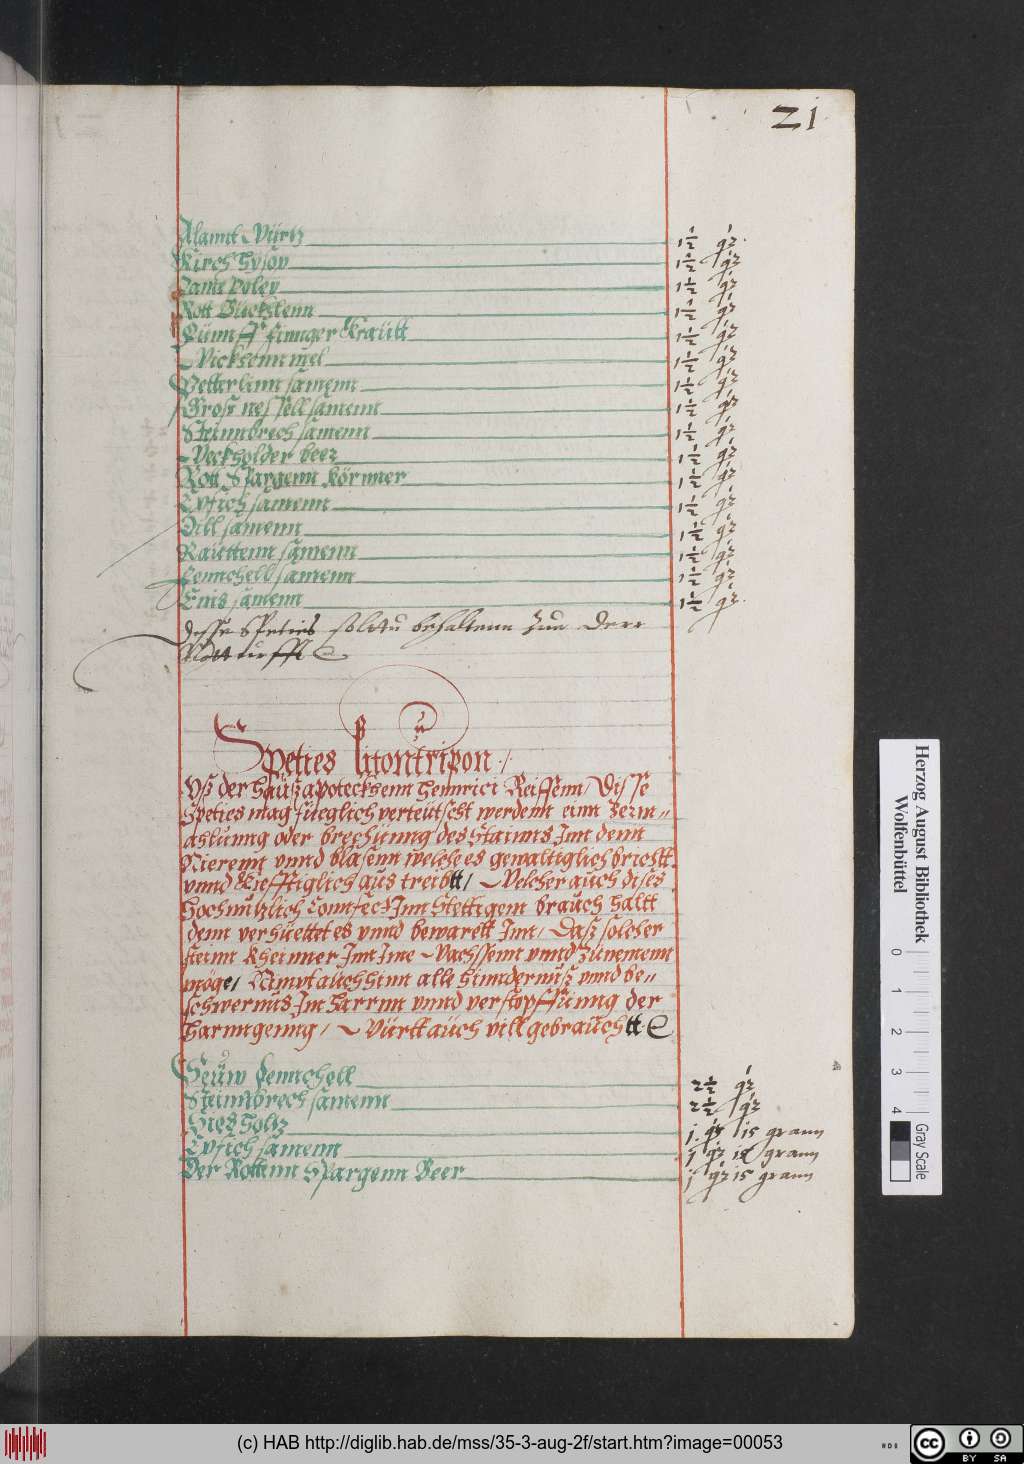 21
Alannt Würtz 1½ qz.
Kirch Hysop 1½ qz
Zame Poley 1½ qz
Rott Bückhlenn 1½ qz
Fünnff finnger Kraütt 1½ qz
Wickhenn mel 1½ qz
Petterlinn samenn 1½ qz
Gross nessell samenn 1½ qz
Steinnbrech samenn 1½ qz
Weckholder beer 1½ qz
Rott Spargenn körnner 1½ qz
Epfich samenn 1½ qz
Dill samenn 1½ qz
Rauttenn samenn 1½ qz
Fennchell samenn 1½ qz
Enis samenn 1½ qz.
Disse Speties soltu behaltenn zue Derr
Notturfft
Speties litontripon /
Vß der haußapoteckhenn Heinrici Reiffenn / Disse
Speties mag füeglich verteütscht werdenn einn Zerm=
ahlunng oder brechunng des Stainns Inn denn
Nierenn vnnd blasenn welche es gewaltiglich bricht
vnnd Crefftiglich aus treibtt / Welcher auch dises
Hochnutzlich Connfect Inn Stettigem brauch haltt
denn verhüettet es vnnd bewartt Inn / Daß solcher
steinn kheinner Inn Ime Wachssenn vnnd Zunemenn
möge / Nimpt auch hinn alle hinndernuß vnnd be=
schwernus Im harrnn vnnd verstopffunng der
harnngenng / Württ auch vill gebrauchtt
Seuw fennchell 2½ qz
Steinnbrech samenn 2½ qz
Sies holtz j qz 15 grann
Epfich samenn j qz 15 grann
Der Rottenn Spargenn Beer j qz 15 grann
Herzog August Bibliothek
Wolfenbüttel
0 1 2 3 4
Gray Scale
(c) HAB http://diglib.hab.de/mss/35-3-aug-2f/start.htm?image=00053
cc BY SA